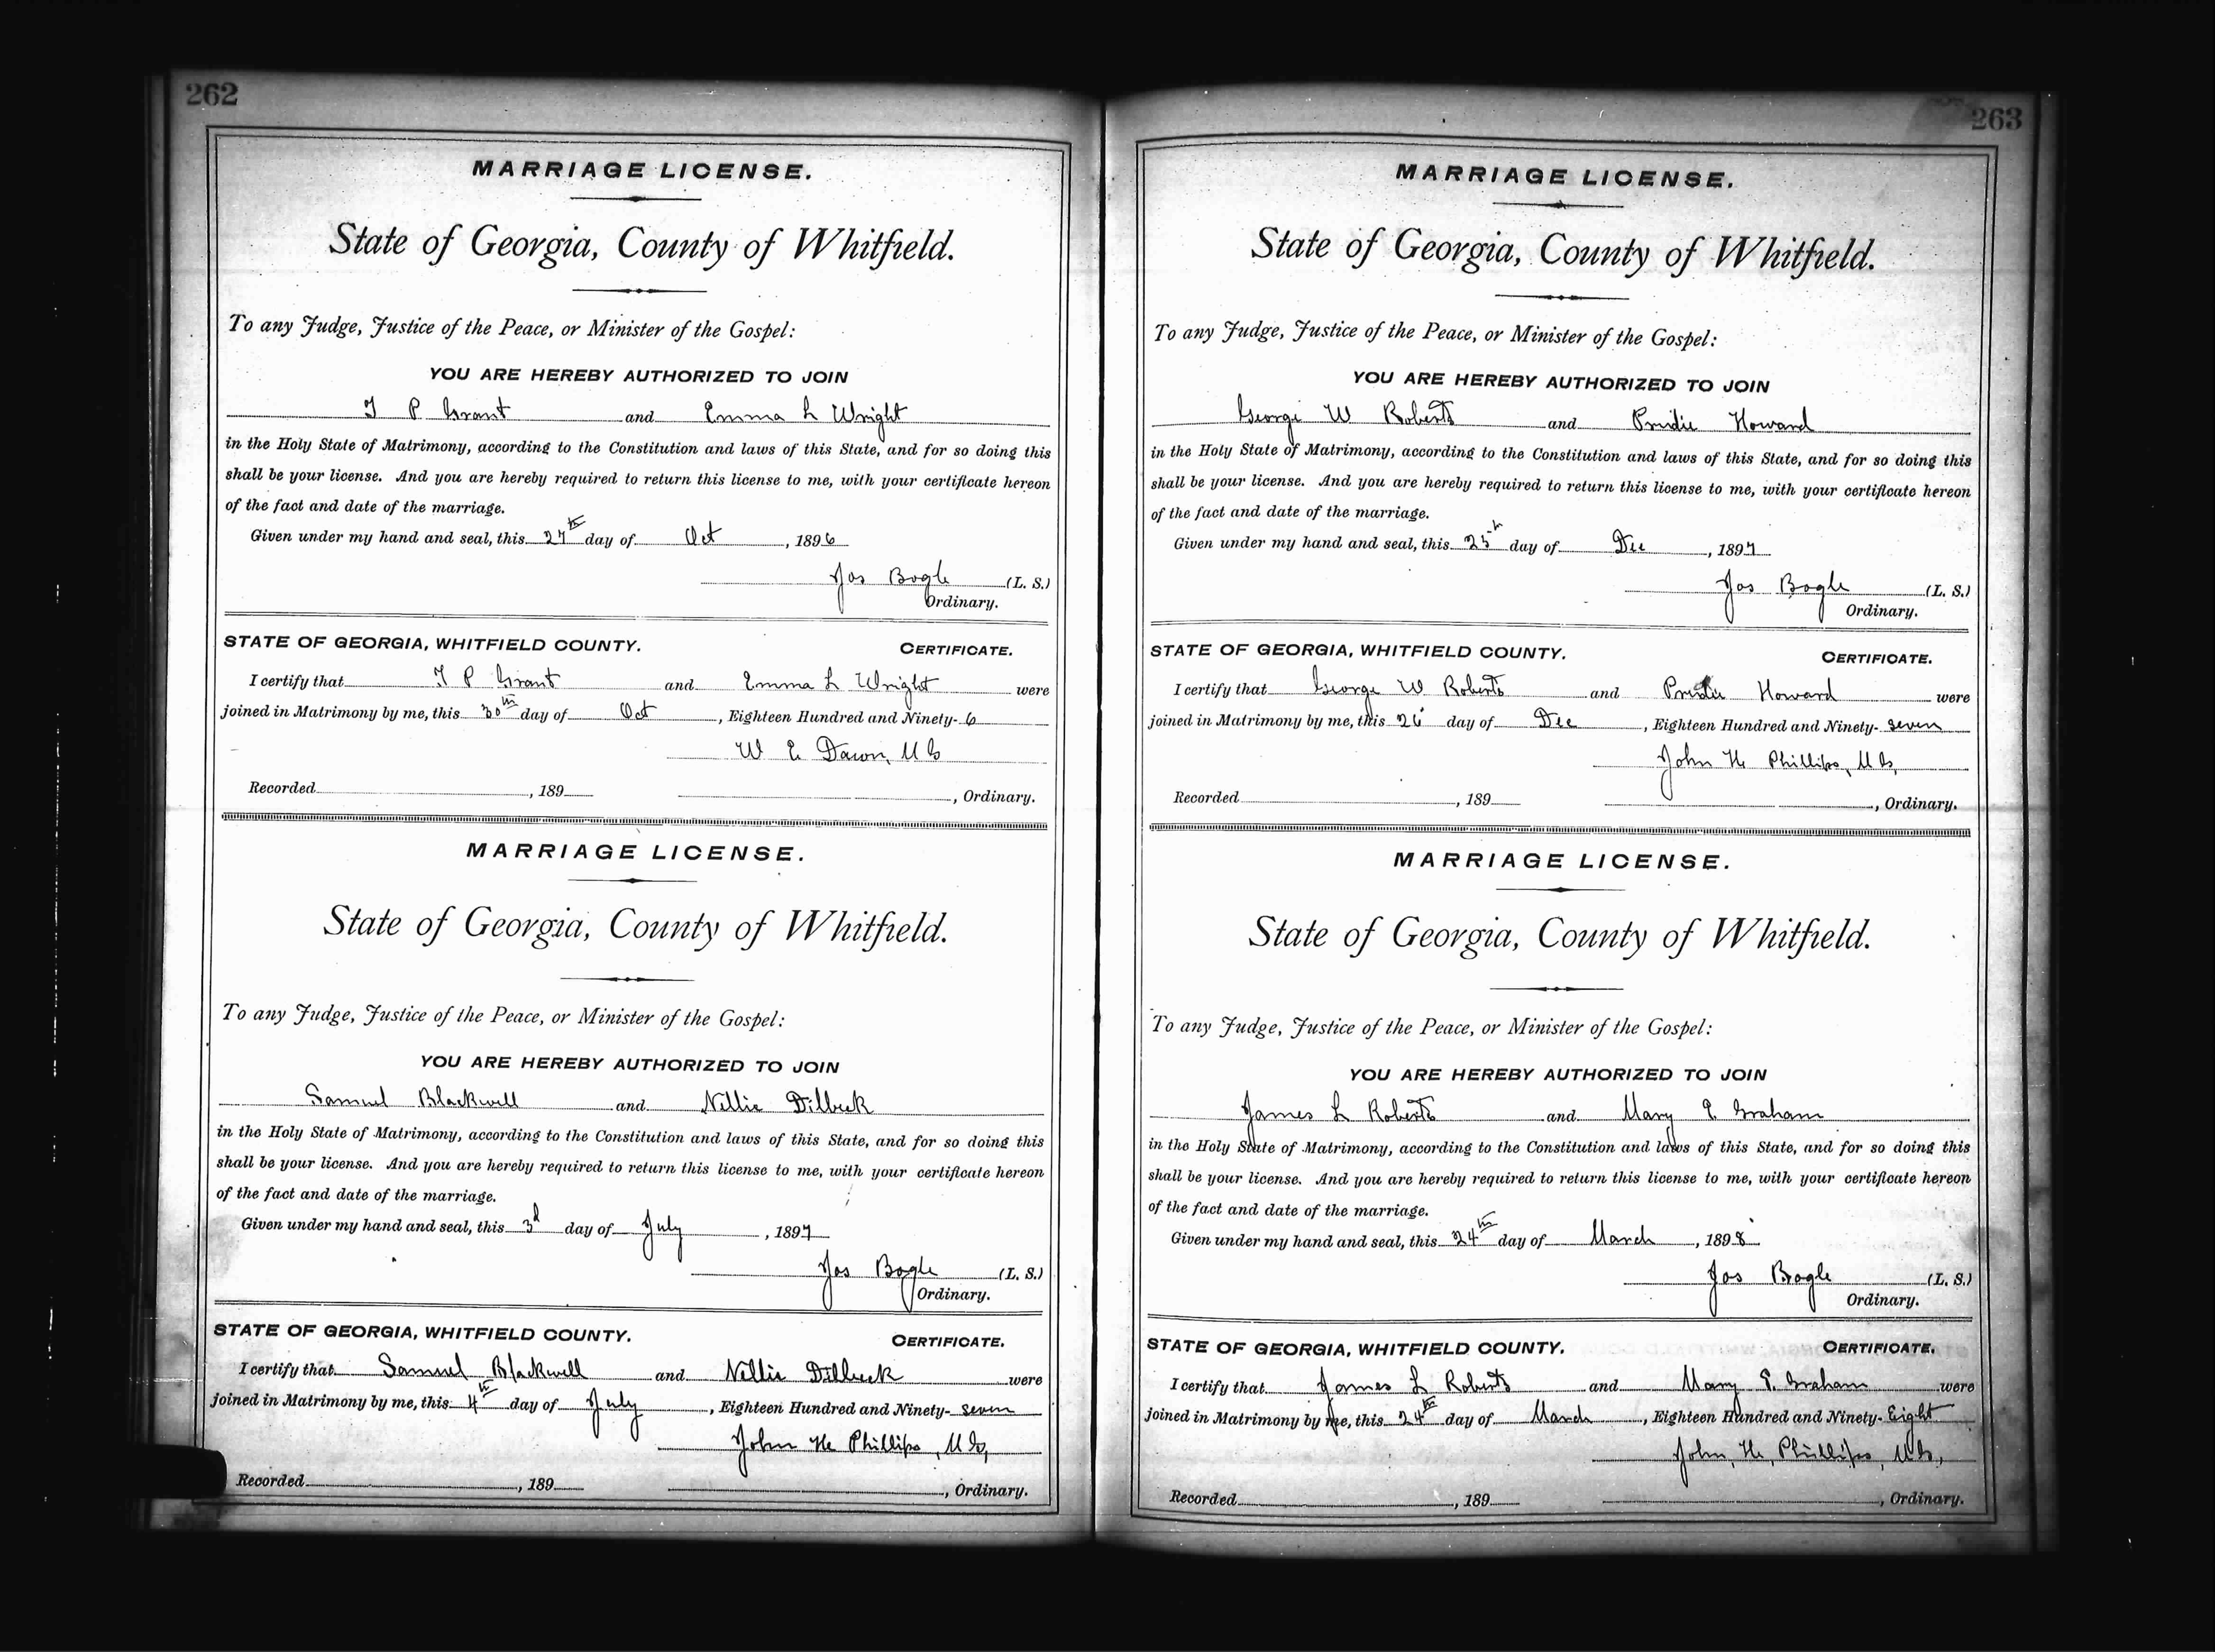 262
MARRIAGE LICENSE.
State of Georgia, County of Whitfield.
To any Judge, Justice of the Peace, or Minister of the Gospel:
YOU ARE HEREBY AUTHORIZED TO JOIN
T P Grant and Emma L Wright
in the Holy State of Matrimony, according to the Constitution and laws of this State, and for so doing this
shall be your license. And you are hereby required to return this license to me, with your certificate hereon
of the fact and date of the marriage.
Given under my hand and seal, this 27th day of Oct, 1896
Jos Bogle (L. S.)
Ordinary.
STATE OF GEORGIA, WHITFIELD COUNTY. CERTIFICATE.
I certify that T P Grant and Emma L Wright were
joined in Matrimony by me, this 30th day of Oct, Eighteen Hundred and Ninety-6
W E M G
Recorded, 189 , Ordinary.
MARRIAGE LICENSE.
State of Georgia, County of Whitfield.
To any Judge, Justice of the Peace, or Minister of the Gospel:
YOU ARE HEREBY AUTHORIZED TO JOIN
Samuel Blackwell and Nellie Dilbeck
in the Holy State of Matrimony, according to the Constitution and laws of this State, and for so doing this
shall be your license. And you are hereby required to return this license to me, with your certificate hereon
of the fact and date of the marriage.
Given under my hand and seal, this 3d day of July, 1897
Jos Bogle (L. S.)
Ordinary.
STATE OF GEORGIA, WHITFIELD COUNTY. CERTIFICATE.
I certify that Samuel Blackwell and Nellie Dilbeck were
joined in Matrimony by me, this 4th day of July, Eighteen Hundred and Ninety-seven
John H Phillips, M G,
Recorded, 189 , Ordinary.
263
MARRIAGE LICENSE.
State of Georgia, County of Whitfield.
To any Judge, Justice of the Peace, or Minister of the Gospel:
YOU ARE HEREBY AUTHORIZED TO JOIN
George W Roberts and Howard
in the Holy State of Matrimony, according to the Constitution and laws of this State, and for so doing this
shall be your license. And you are hereby required to return this license to me, with your certificate hereon
of the fact and date of the marriage.
Given under my hand and seal, this 25th day of Dec, 1897
Jos Bogle (L. S.)
Ordinary.
STATE OF GEORGIA, WHITFIELD COUNTY. CERTIFICATE.
I certify that George W Roberts and Howard were
joined in Matrimony by me, this 26 day of Dec, Eighteen Hundred and Ninety-seven
John H Phillips, M G,
Recorded, 189 , Ordinary.
MARRIAGE LICENSE.
State of Georgia, County of Whitfield.
To any Judge, Justice of the Peace, or Minister of the Gospel:
YOU ARE HEREBY AUTHORIZED TO JOIN
James L Roberts and Mary Graham
in the Holy State of Matrimony, according to the Constitution and laws of this State, and for so doing this
shall be your license. And you are hereby required to return this license to me, with your certificate hereon
of the fact and date of the marriage.
Given under my hand and seal, this 24th day of March, 1898
Jos Bogle (L. S.)
Ordinary.
STATE OF GEORGIA, WHITFIELD COUNTY. CERTIFICATE.
I certify that James L Roberts and Mary Graham were
joined in Matrimony by me, this 24th day of March, Eighteen Hundred and Ninety-Eight
John, H, Phillips, M G,
Recorded, 189 , Ordinary.